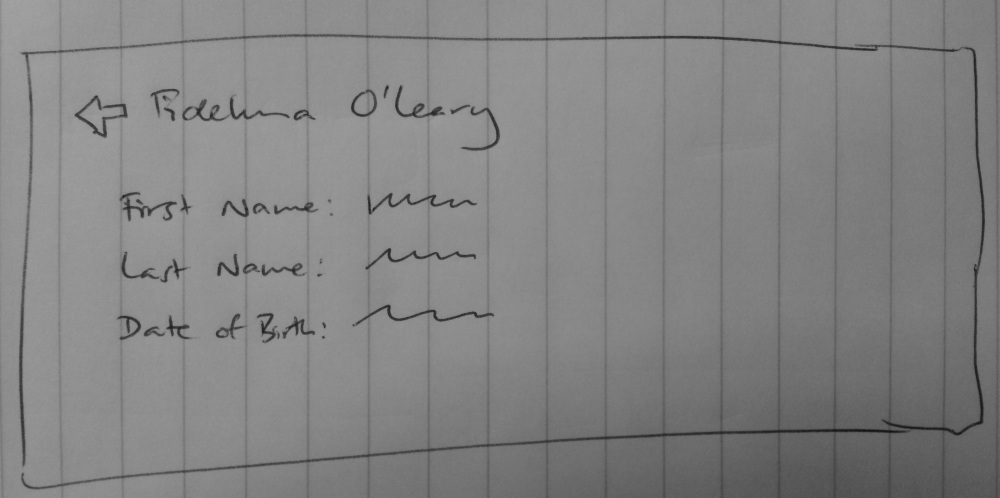 Fidelma O'Leary
First Name:
Last Name:
Date of Birth: